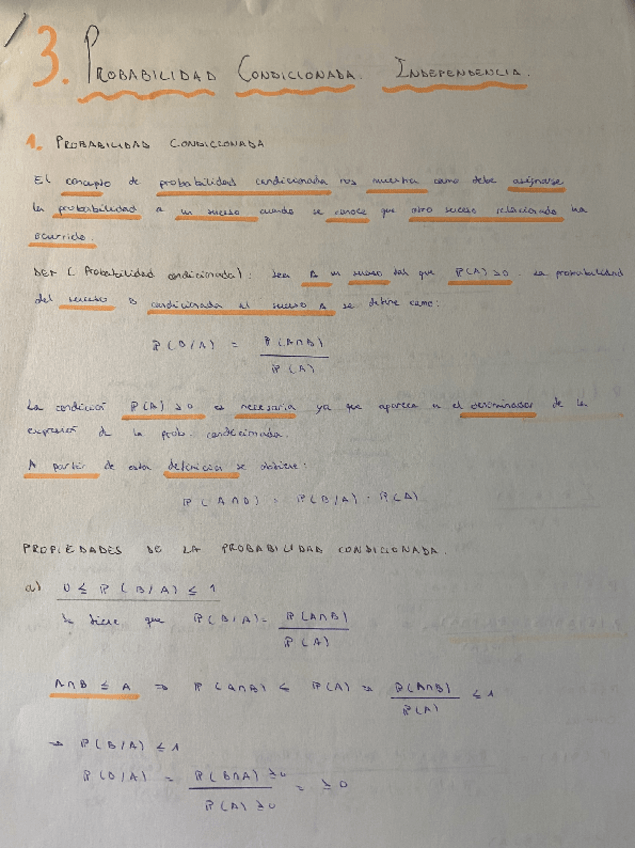 3. PROBABILIDAD CONDICIONADA. INDEPENDENCIA.
1. PROBABILIDAD CONDICIONADA
El concepto de probabilidad condicionada nos muestra como debe asignarse
la probabilidad a un suceso cuando se conoce que otro suceso relacionado ha
ocurrido.
DEF (Probabilidad condicionada): Sea A un suceso tal que P(A) > 0. La probabilidad
del suceso B condicionada al suceso A se define como:
P(B/A) = P(A∩B) / P(A)
La condición P(A) > 0 es necesaria ya que aparece en el denominador de la
expresión de la prob. condicionada.
A partir de esta definición se obtiene:
P(A∩B) = P(B/A) · P(A)
PROPIEDADES DE LA PROBABILIDAD CONDICIONADA.
a) 0 ≤ P(B/A) ≤ 1
Se tiene que P(B/A) = P(A∩B) / P(A)
A∩B ≤ A ⇒ P(A∩B) ≤ P(A) ⇒ P(A∩B) / P(A) ≤ 1
⇒ P(B/A) ≤ 1
P(B/A) = P(B∩A) ≥0 / P(A) ≥0 = ≥ 0